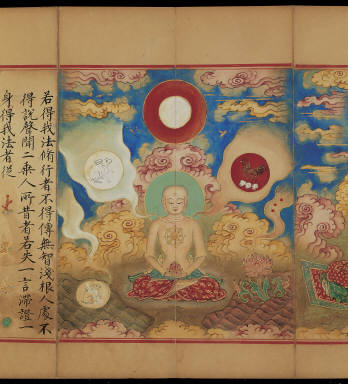 若得我法脩行者不得傳無智淺根人處不
得說聲聞二乘人所昔者若失一言滯證一
身得我法者從